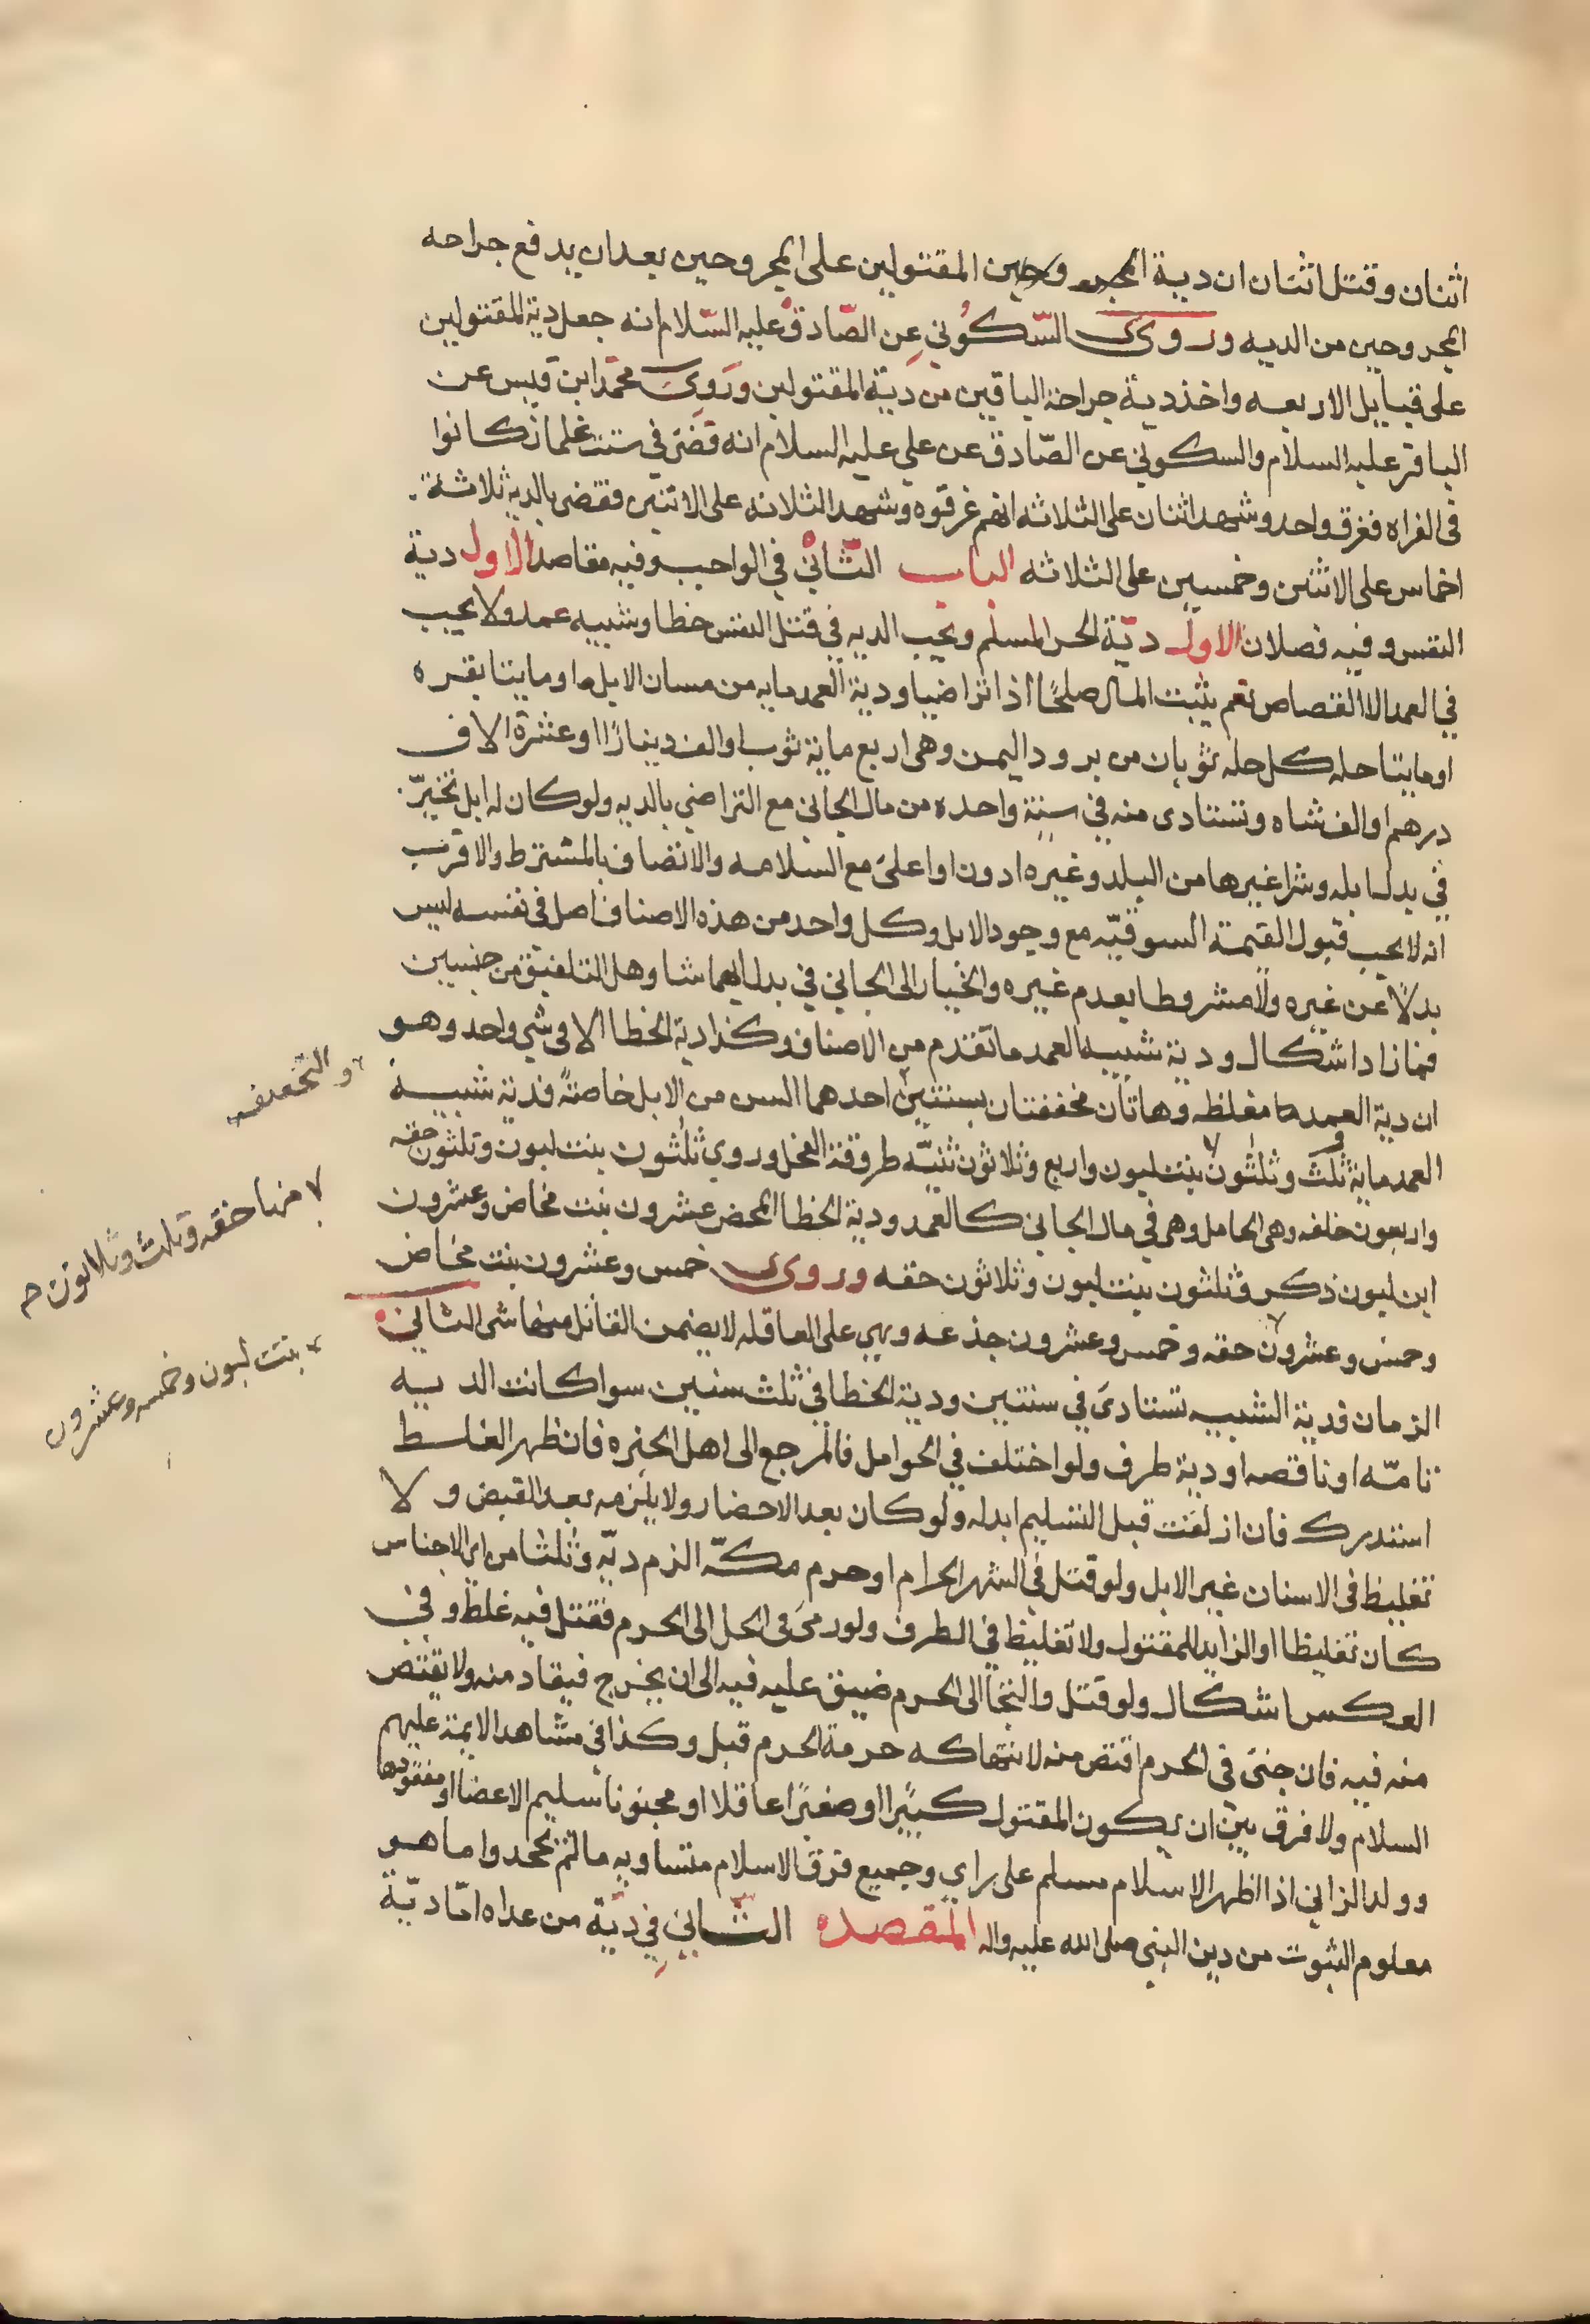 اثنان وقتل اثنان ان دية المجروحين المقتولين على المجروحين بعد ان يدفع جراحه
المجروحين من الديه وروى السّكوني عن الصّادق عليه السّلام انه جعل دية المقتولين
على قبايل الاربعه واخذ دية جراحة الباقين من دية المقتولين وروى محمّد ابن قيس عن
الباقر عليه السلام والسكوني عن الصّادق عن علي عليه السلام انه قضى في ستت غلمان كانوا
في الفراه فغرق واحد وشهد اثنان على الثلاثه انهم غرقوه وشهد الثلاثه على الاثنين فقضى بالديه ثلاثة
اخماس على الاثنين وخمسين على الثلاثه الباب الثّاني في الواجب وفيه مقاصد الاول دية
النفس وفيه فصلان الاول ديّة الحر المسلم وتجب الديه في قتل النفس خطا وشبيه عمد ولا يجب
في العمد الا القصاص نعم يثبت المال صلحًا اذا تراضيا ودية العمد مايه من مسان الابل او مايتا بقره
او مايتا حله كل حله ثوبان من برود اليمن وهي اربع ماية ثوب او الف دينارًا او عشرة الاف
درهم او الف شاه وتستادى منه في سنة واحده من مال الجاني مع التراضي بالديه ولو كان له ابل تخيّر
في بدل ابله وشرا غيرها من البلد وغيره ادون او اعلى مع السلامه والاتصاف بالمشترط والاقرب
انه لا يجب قبول القيمة السوقيّه مع وجود الابل وكل واحد من هذه الاصناف اصل في نفسه ليس
بدلًا عن غيره ولا مشروطا بعدم غيره والخيار الى الجاني في بدل ايهما شا وهل التلفيق من جنسين
فمازاد اشكال ودية شبيه العمد ما تقدم من الاصناف وكذا دية الخطا الا في شي واحد وهو
والتخفيف
ان دية العمد مغلظه وهاتان مخففتان بسنتين احدهما السن من الابل خاصةً فدية شبيه
العمد ماية ثلث وثلثون بنت لبون واربع وثلاثون ثنيّه طروقة الفحل وروي ثلثون بنت لبون وثلثون حقه
منها حقه وثلث وثلاثون
واربعون خلفه وهي الحامل وهي في مال الجاني كالعمد ودية الخطا المحض عشرون بنت مخاض وعشرون
ابن لبون ذكر وثلثون بنت لبون وثلاثون حقه وروى خمس وعشرون بنت مخاض
وخمس وعشرون حقه وخمس وعشرون جذعه وهي على العاقله لا يضمن القاتل منها شي الثاني
بنت لبون وخمسه وعشرون
الزمان فدية الشبيه تستادى في سنتين ودية الخطا في ثلث سنين سوا كانت الديه
تامّه او ناقصه او دية طرف ولو اختلف في الحوامل فالمرجع الى اهل الخبره فان ظهر الغلط
استدرك فان ازلقت قبل التسليم ابدله ولو كان بعد الاحضار ولا يلزمه بعد القبض ولا
تغليظ في الاسنان غير الابل ولو قتل في الشهر الحرام او حرم مكّه الزم ديّه وثلثا من اي الاجناس
كان تغليظا او الزايد للمقتول ولا تغليظ في الطرف ولو رمى في الحل الى الحرم فقتل فيه غلظ وفي
العكس اشكال ولو قتل والتجا الى الحرم ضيق عليه فيه الى ان يخرج فيقاد منه ولا يقتص
منه فيه فان جنى في الحرم اقتص منه لانتهاكه حرمة الحرم قيل وكذا في مشاهد الايمة عليهم
السلام ولا فرق بين ان يكون المقتول كبيرًا او صغيرًا عاقلا او مجنونا سليم الاعضا او مفقودها
وولد الزاني اذا اظهر الاسلام مسلم على راي وجميع فرق الاسلام متساويه مالم يجحدوا ما هو
معلوم الثبوت من دين النبي صلى الله عليه واله المقصده الثّاني في ديّة من عداه امّا ديّة